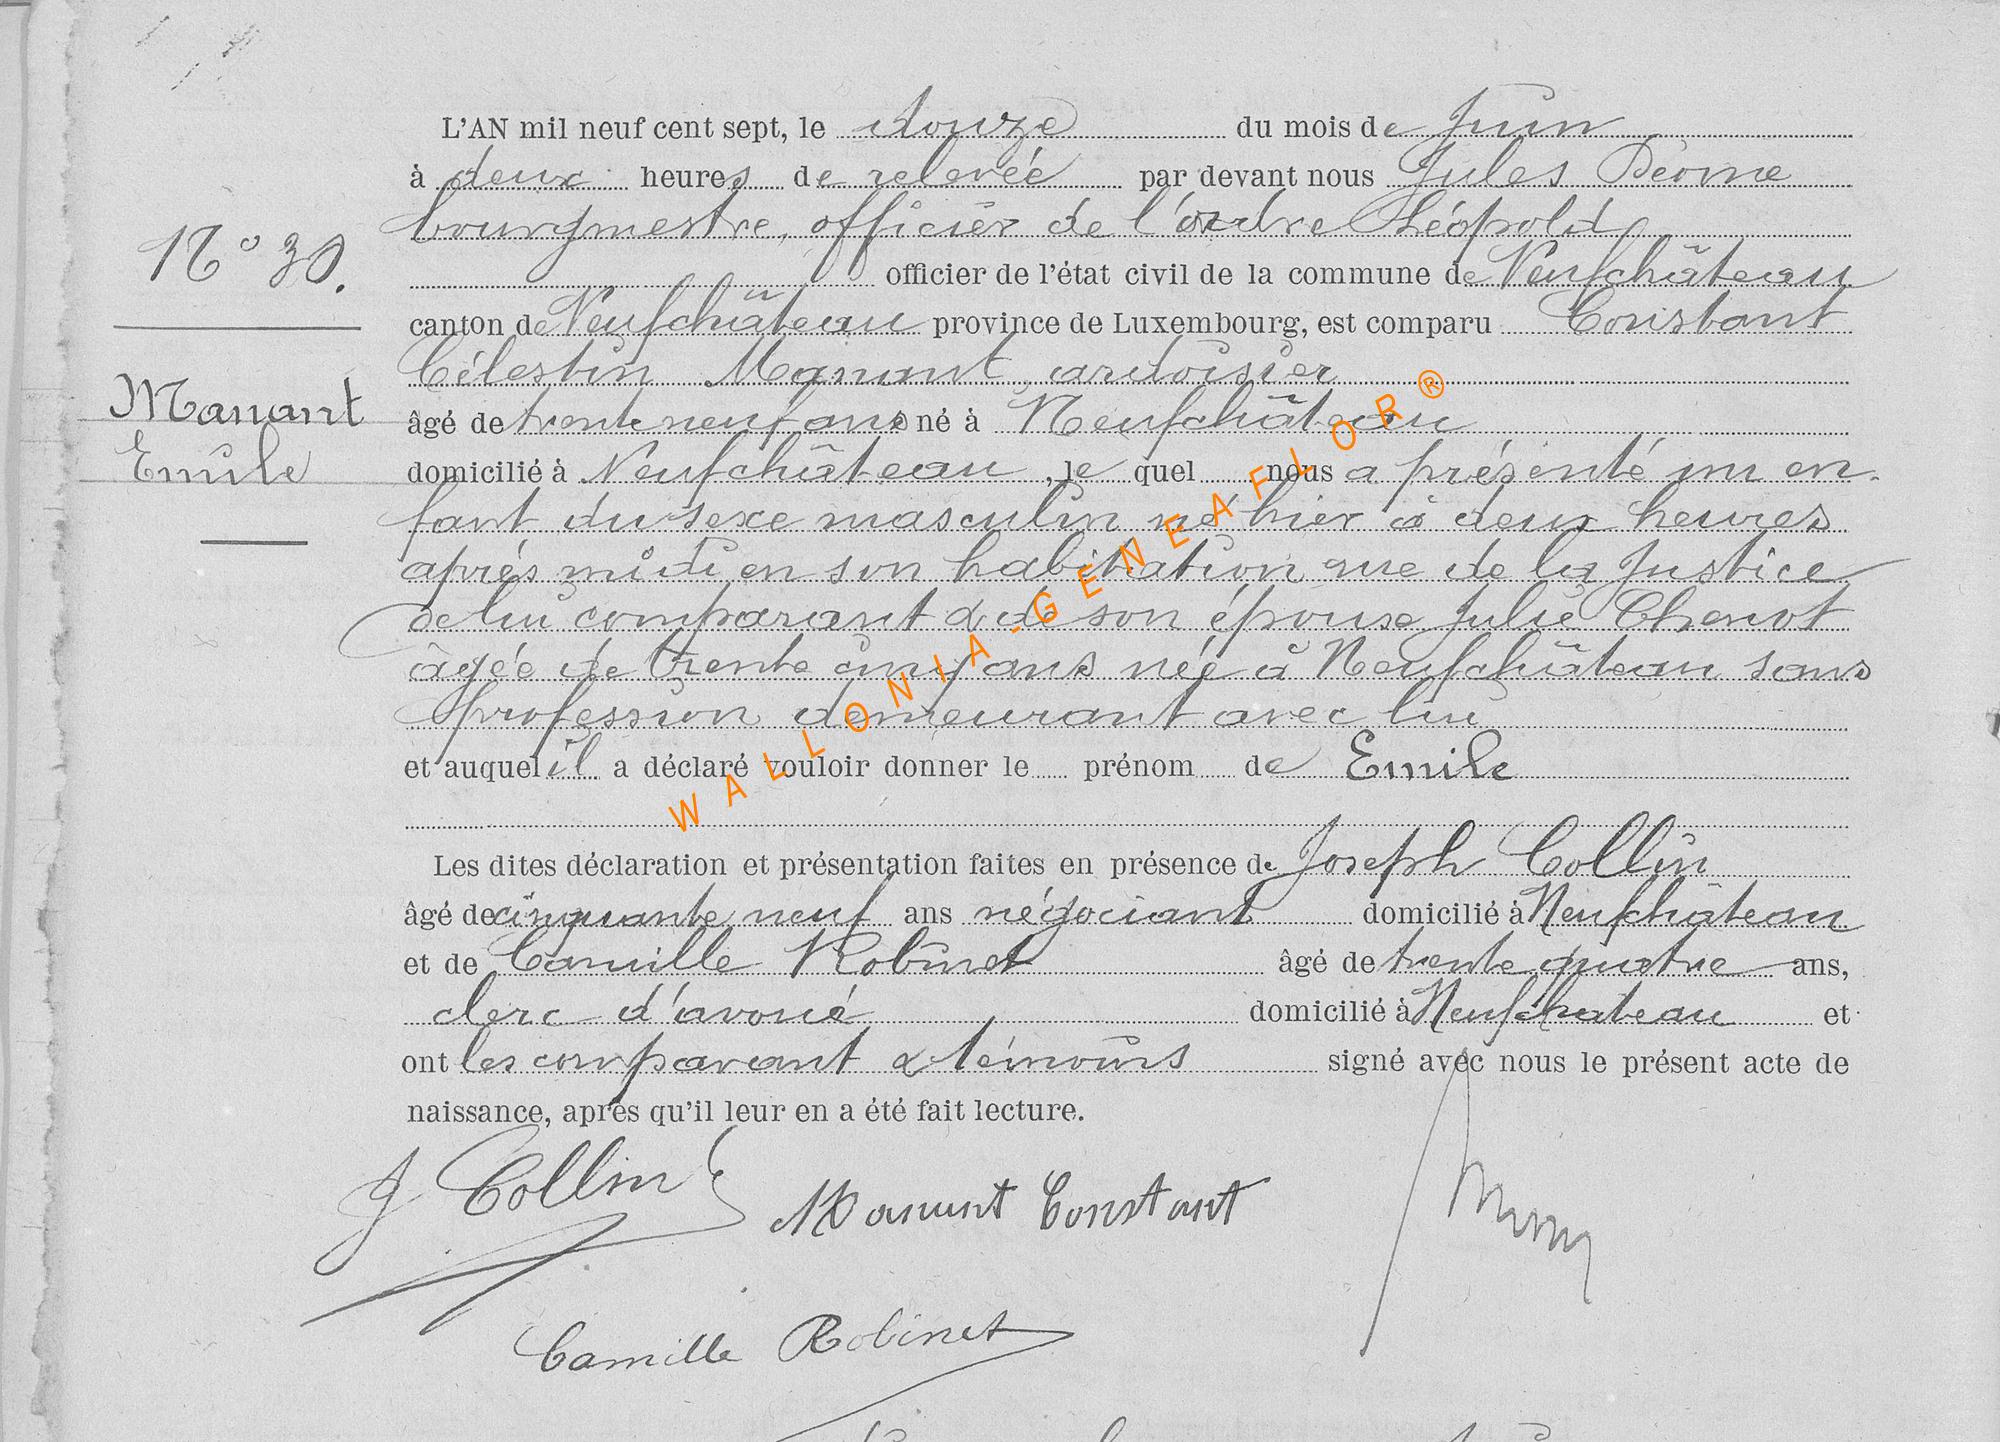 L'AN mil neuf cent sept, le douze du mois de Juin
à deux heures de relevée par devant nous Jules
bourgmestre, officier de l'ordre Léopold
N° 30.
officier de l'état civil de la commune de Neufchâteau
canton de Neufchâteau province de Luxembourg, est comparu Constant
Célestin Manant, ardoisier
Manant
âgé de trente neuf ans né à Neufchâteau
Emile
domicilié à Neufchâteau, le quel nous a présenté un en-
fant du sexe masculin né hier à deux heures
après midi en son habitation rue de la Justice
de lui comparant & de son épouse Julie Chenot
âgée de trente cinq ans née à Neufchâteau sans
profession demeurant avec lui
et auquel il a déclaré vouloir donner le prénom de Emile
WALLONIA-GENEAFLOR®
Les dites déclaration et présentation faites en présence de Joseph Collin
âgé de cinquante neuf ans négociant domicilié à Neufchâteau
et de Camille Robinet âgé de trente quatre ans,
clerc d'avoué domicilié à Neufchateau et
ont les comparant & témoins signé avec nous le présent acte de
naissance, après qu'il leur en a été fait lecture.
J Collin
Manant Constant
Camille Robinet